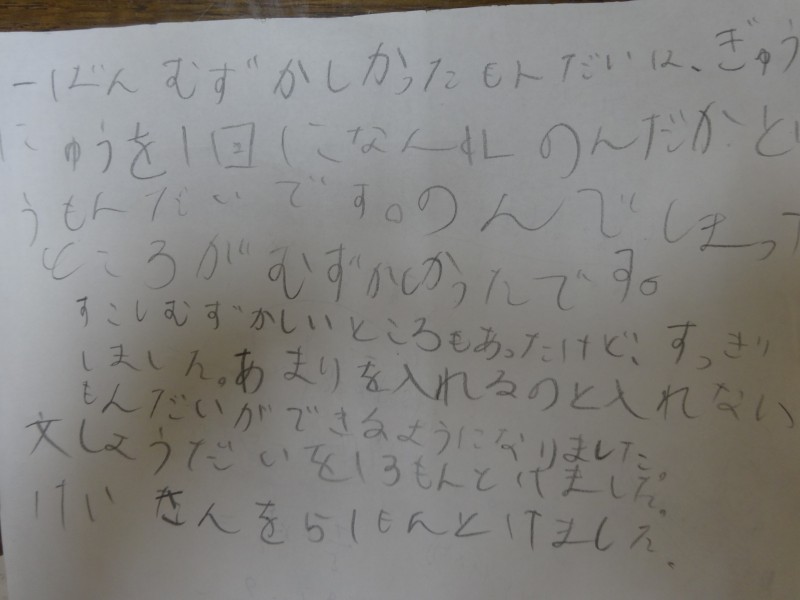 一ばんむずかしかったもんだいは、ぎゅう
にゅうを1回になんdLのんだかとい
うもんだいです。のんでしまって
ところがむずかしかったです。
すこしむずかしいところもあったけど、すっきり
しました。あまりを入れるのと入れない
もんだいができるようになりました。
文しょうだいを13もんとけました。
けいさんを51もんとけました。